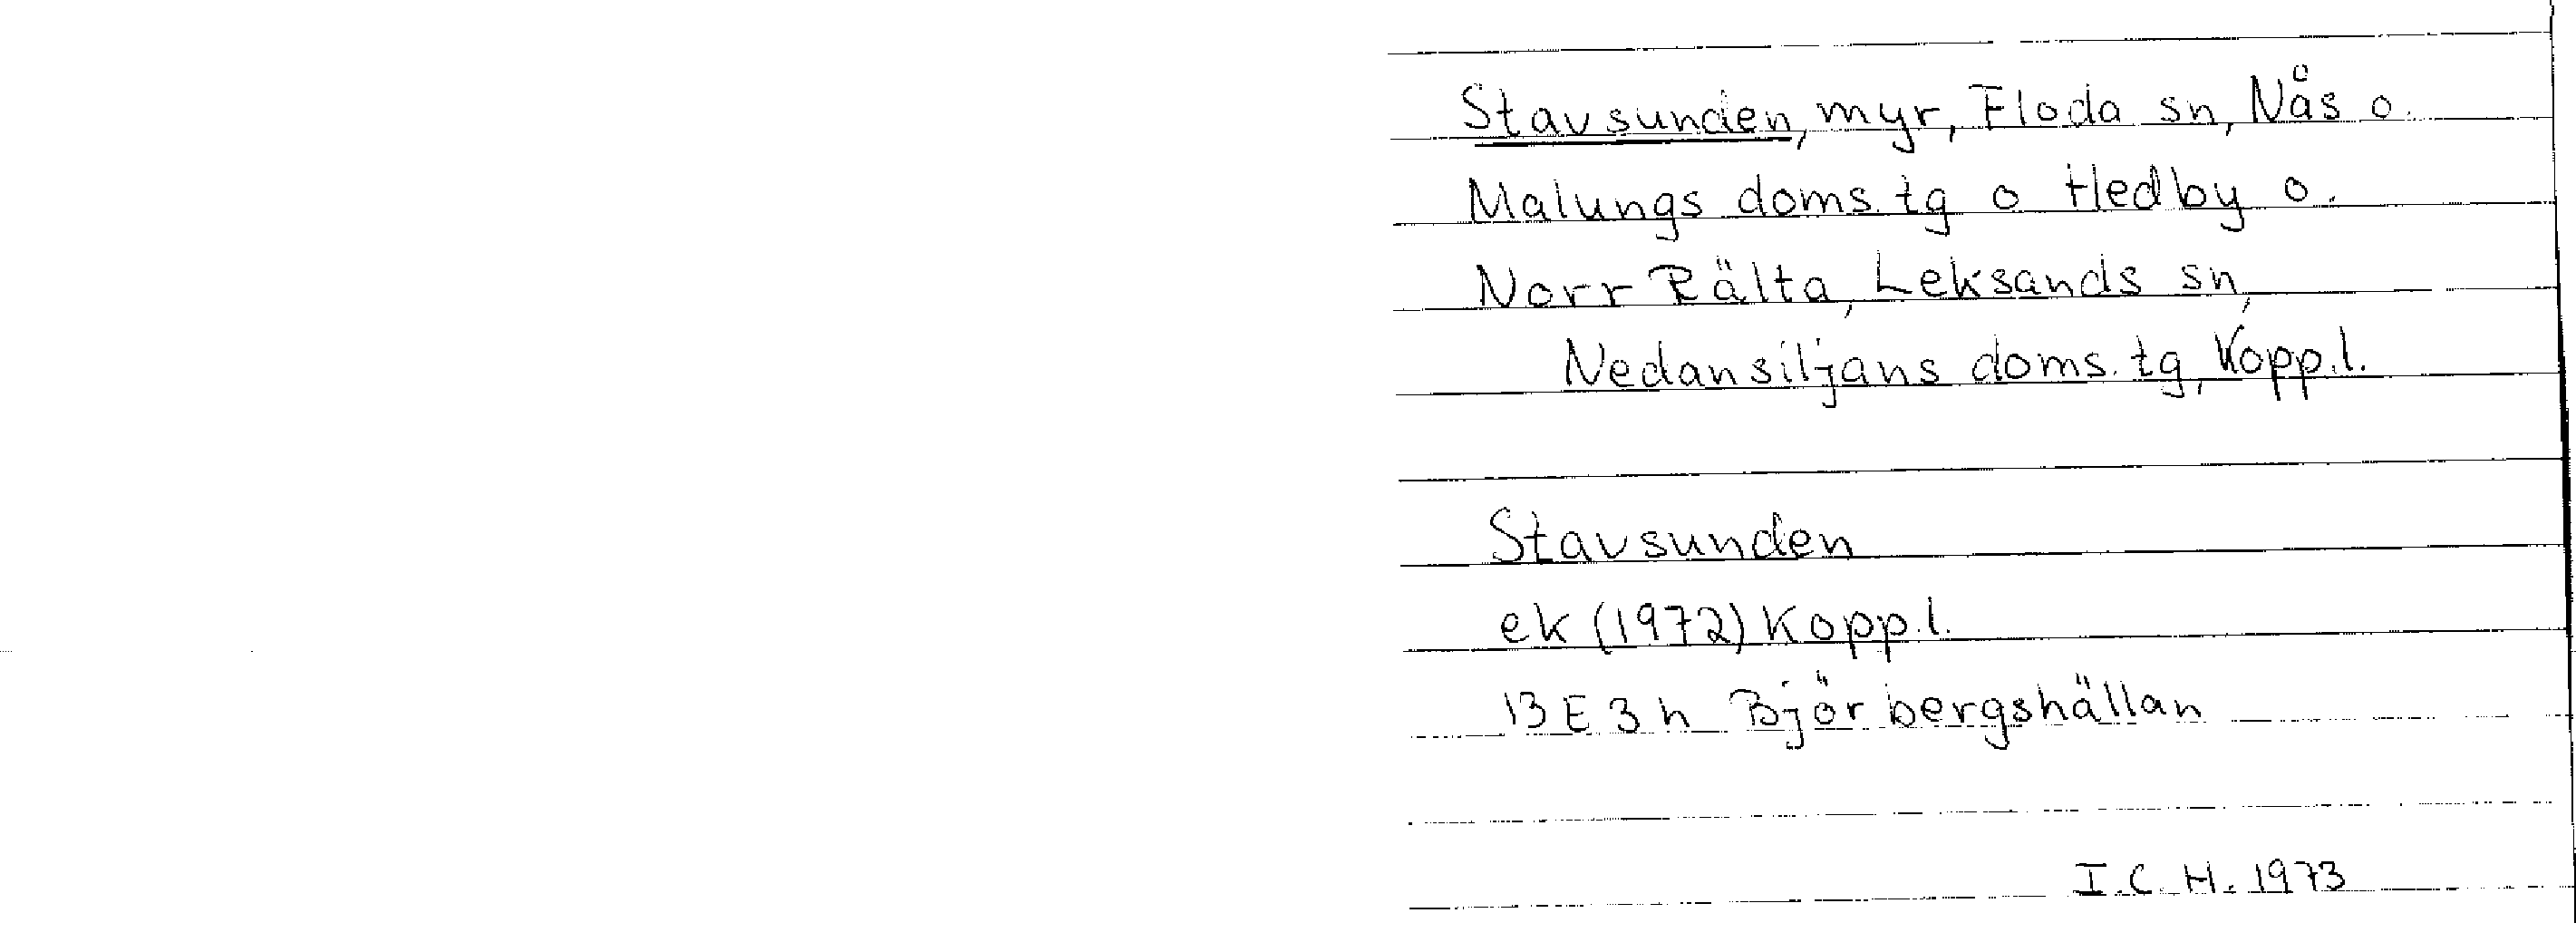 Stavsunden, myr, Floda sn, Nås o.
Malungs doms.tg o Hedby o.
Norr Rälta, Leksands sn,
Nedansiljans doms.tg, Kopp.l.
Stavsunden
ek (1972) Kopp.l.
13 E 3 h Björbergshällan
I.C.H. 1973